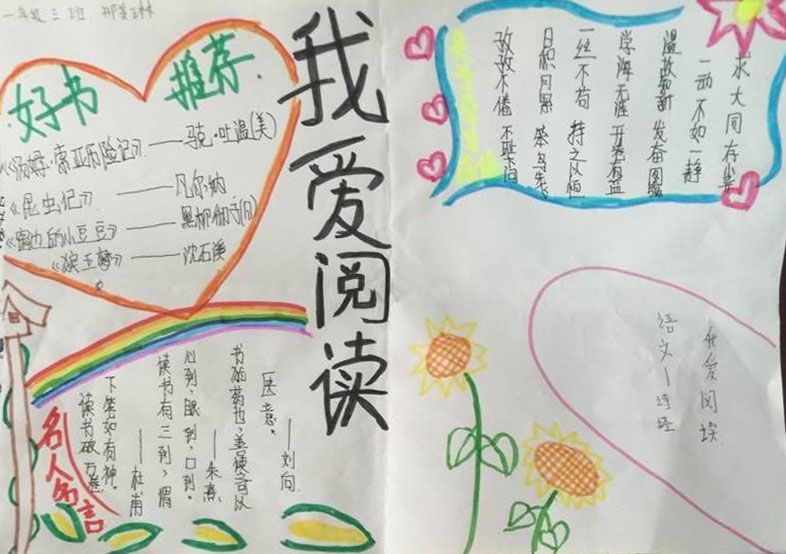 一年级三班
好书 推荐
《汤姆·索亚历险记》——马克·吐温(美)
《昆虫记》——凡尔纳
《窗边的小豆豆》——黑柳彻子(日)
《狼王梦》——沈石溪
我爱阅读
名人名言
读书破万卷
下笔如有神。
——杜甫
读书有三到、谓
心到、眼到、口到。
——朱熹
书犹药也，善读之可以
医愚。
——刘向
孜孜不倦 不耻下问
日积月累 笨鸟先飞
一丝不苟 持之以恒
学海无涯 开卷有益
温故知新 发奋图强
一动不如一静
求大同存小异
我爱阅读
语文—诗经